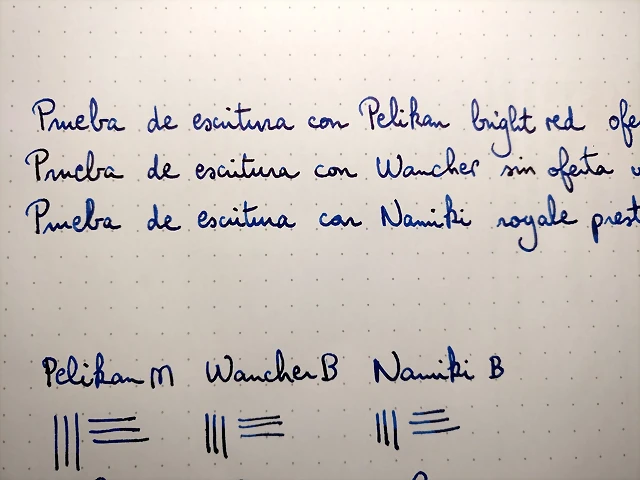 Prueba de escritura con Pelikan bright red
Prueba de escritura con Wancher sin oferta
Prueba de escritura con Namiki royale
Pelikan M Wancher B Namiki B